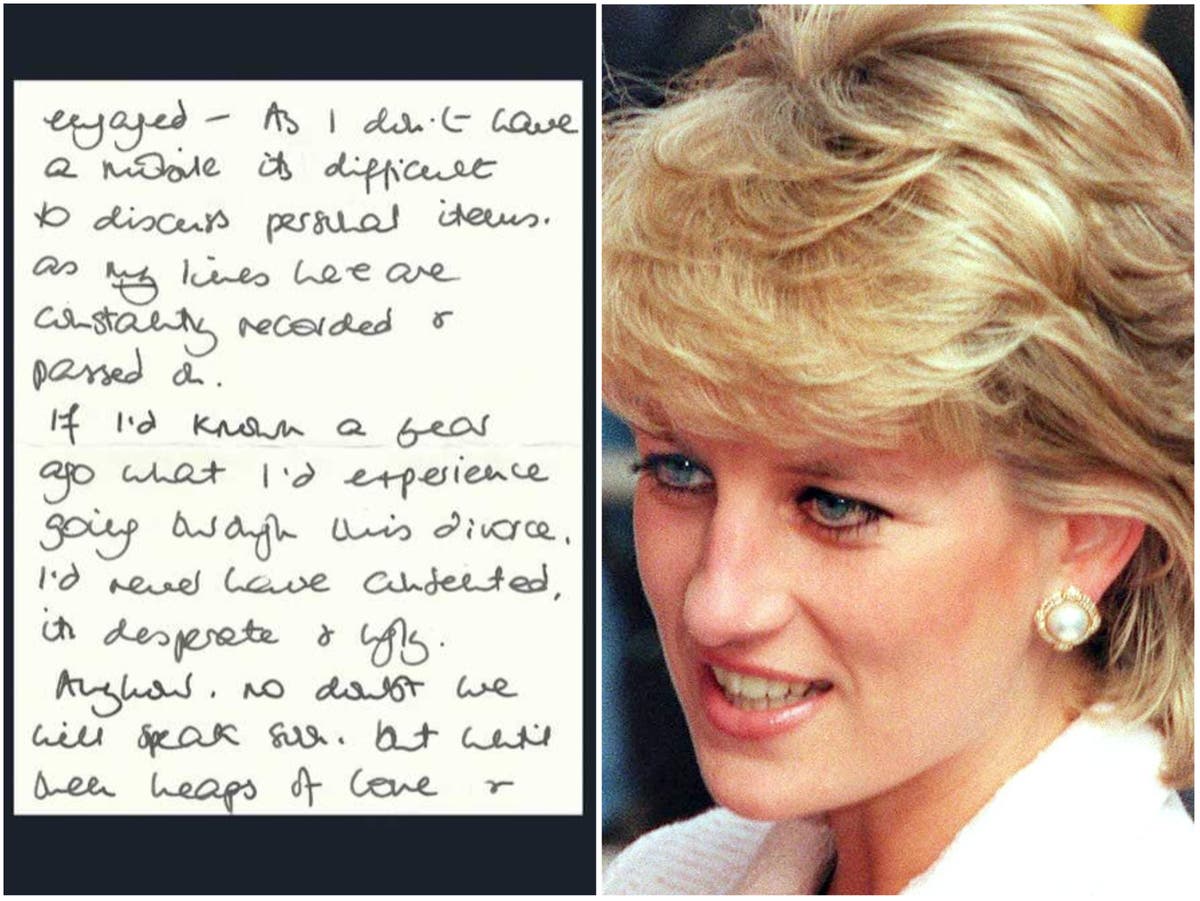 engaged – As I don't have
a mobile its difficult
to discuss personal items.
as my lines here are
constantly recorded &
passed on.
If I'd known a year
ago what I'd experience
going through this divorce.
I'd never have consented,
its desperate & ugly.
Anyhow. no doubt we
will speak soon. but until
then heaps of love &